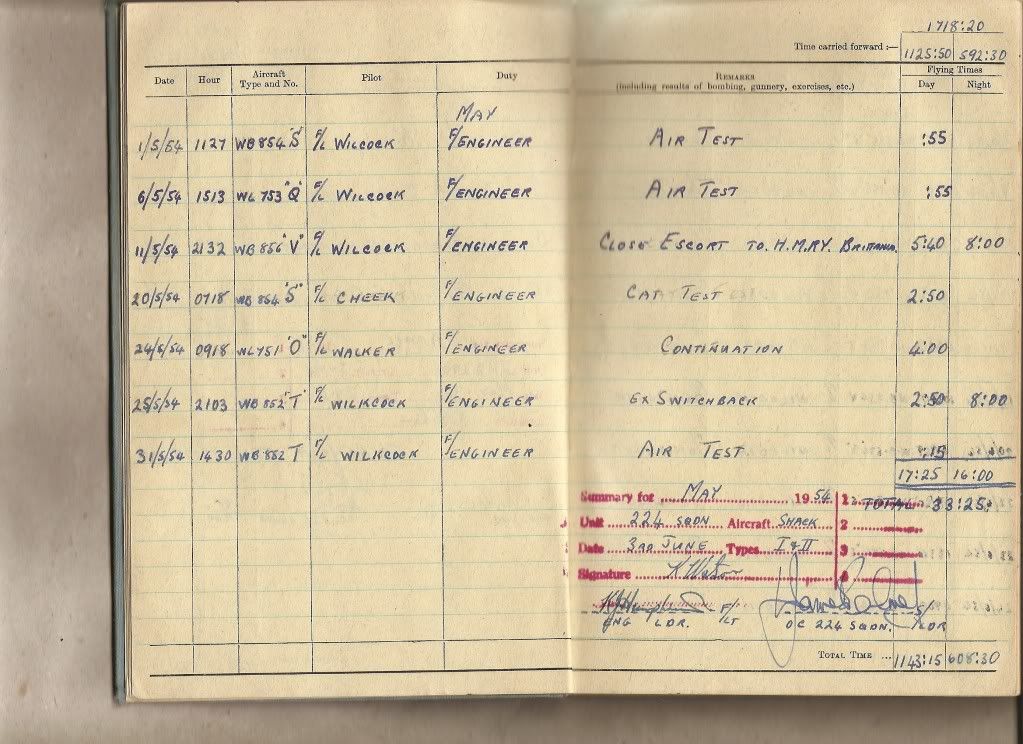 1718:20
Time carried forward :— 1125:50 592:30
Date Hour Aircraft Type and No. Pilot Duty REMARKS (including results of bombing, gunnery, exercises, etc.) Flying Times Day Night
MAY
1/5/54 1127 WB854 "S" F/L WILCOCK F/ENGINEER AIR TEST :55
6/5/54 1513 WL753 "Q" F/L WILCOCK F/ENGINEER AIR TEST :55
11/5/54 2132 WB856 "V" F/L WILCOCK F/ENGINEER CLOSE ESCORT TO. H.M.RY. BRITTANIA. 5:40 8:00
20/5/54 0718 WB854 "S" F/L CHEEK F/ENGINEER CAT TEST 2:50
24/5/54 0918 WL751 "O" F/L WALKER F/ENGINEER CONTINUATION 4:00
25/5/54 2103 WB852 "T" F/L WILKCOCK F/ENGINEER EX SWITCHBACK 2:50 8:00
31/5/54 1430 WB852 T F/L WILKCOCK F/ENGINEER AIR TEST :15
17:25 16:00
Summary for MAY 1954 1 TOTAL 33:25
Unit 224 SQDN Aircraft SHACK 2
Date 3RD JUNE Types I & II 3
Signature K Watson 4
F/LT S/LDR
ENG LDR. OC 224 SQDN.
TOTAL TIME ... 1143:15 608:30